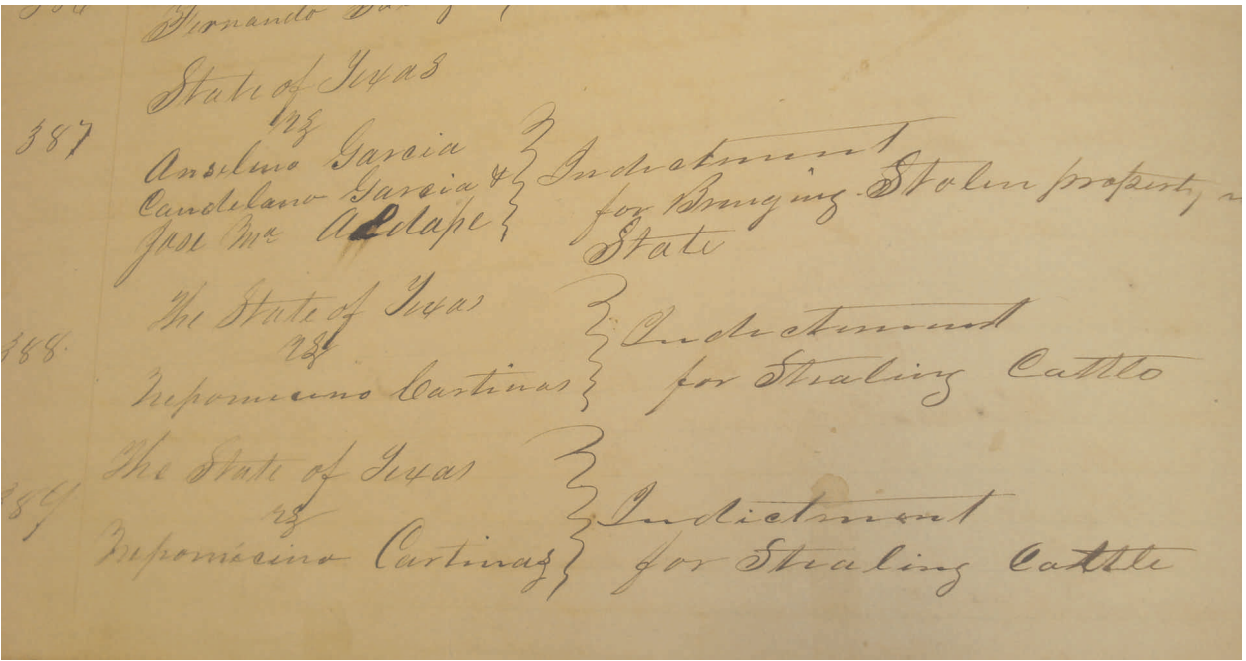 Fernando
State of Texas
vs
387
Anselmo Garcia
Candelano Garcia &
Jose Ma Aldape
Indictment
for Bringing Stolen property
State
The State of Texas
388
vs
Nepomuceno Cartinas
Indictment
for Stealing Cattle
The State of Texas
389
vs
Nepomicino Cartinas
Indictment
for Stealing Cattle